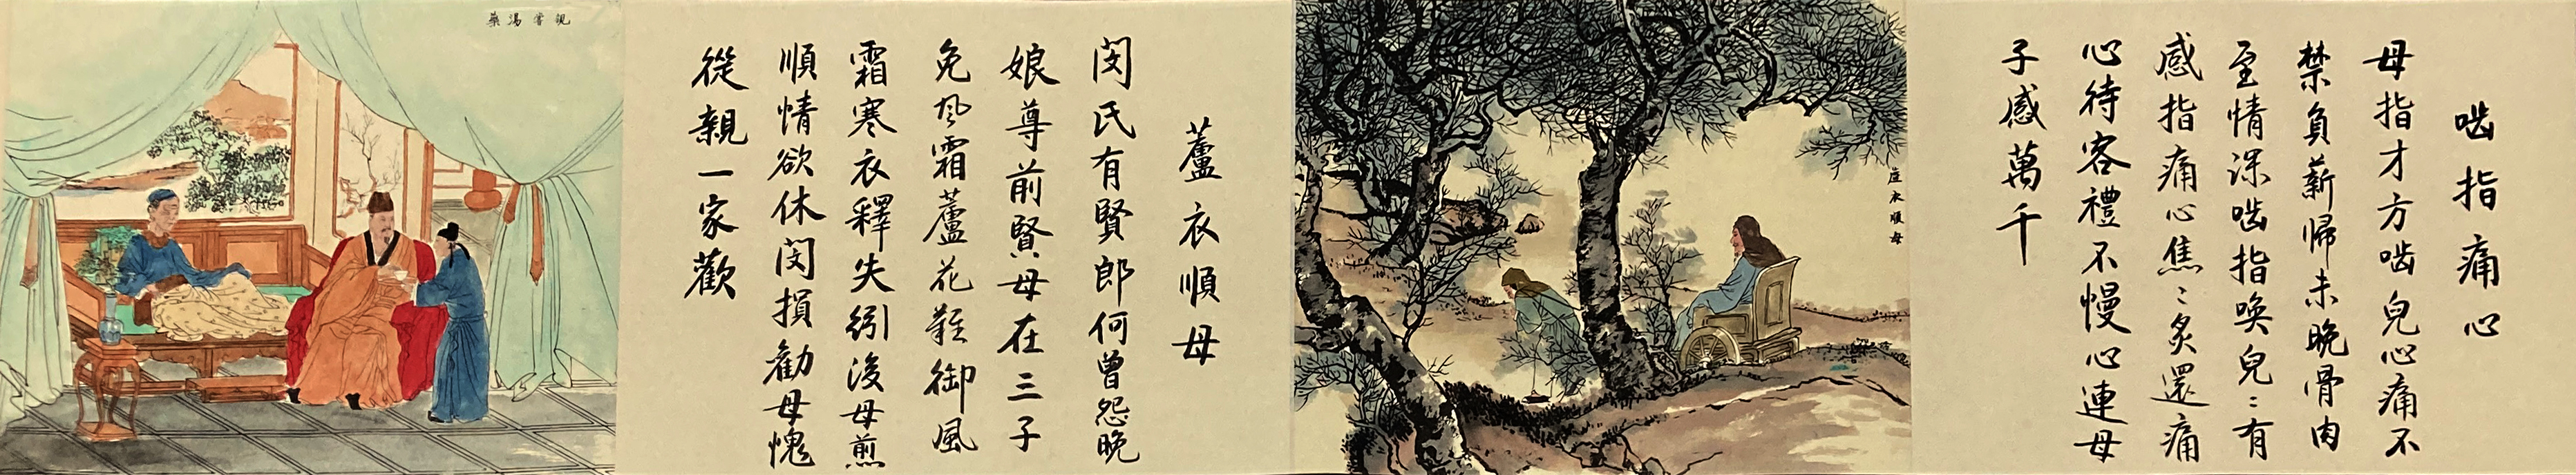 啮指痛心
母指才方啮兒心痛不
禁負薪歸未晚骨肉
至情深啮指喚兒：有
感指痛心焦：炙還痛
心待客禮不慢心連母
子感萬千
芦衣順母
蘆衣順母
閔氏有賢郎何曾怨晚
娘尊前賢母在三子
免风霜蘆花難御風
霜寒衣釋失紖後母煎
順情欲休閔損勸母愧
從親一家歡
親嘗湯藥